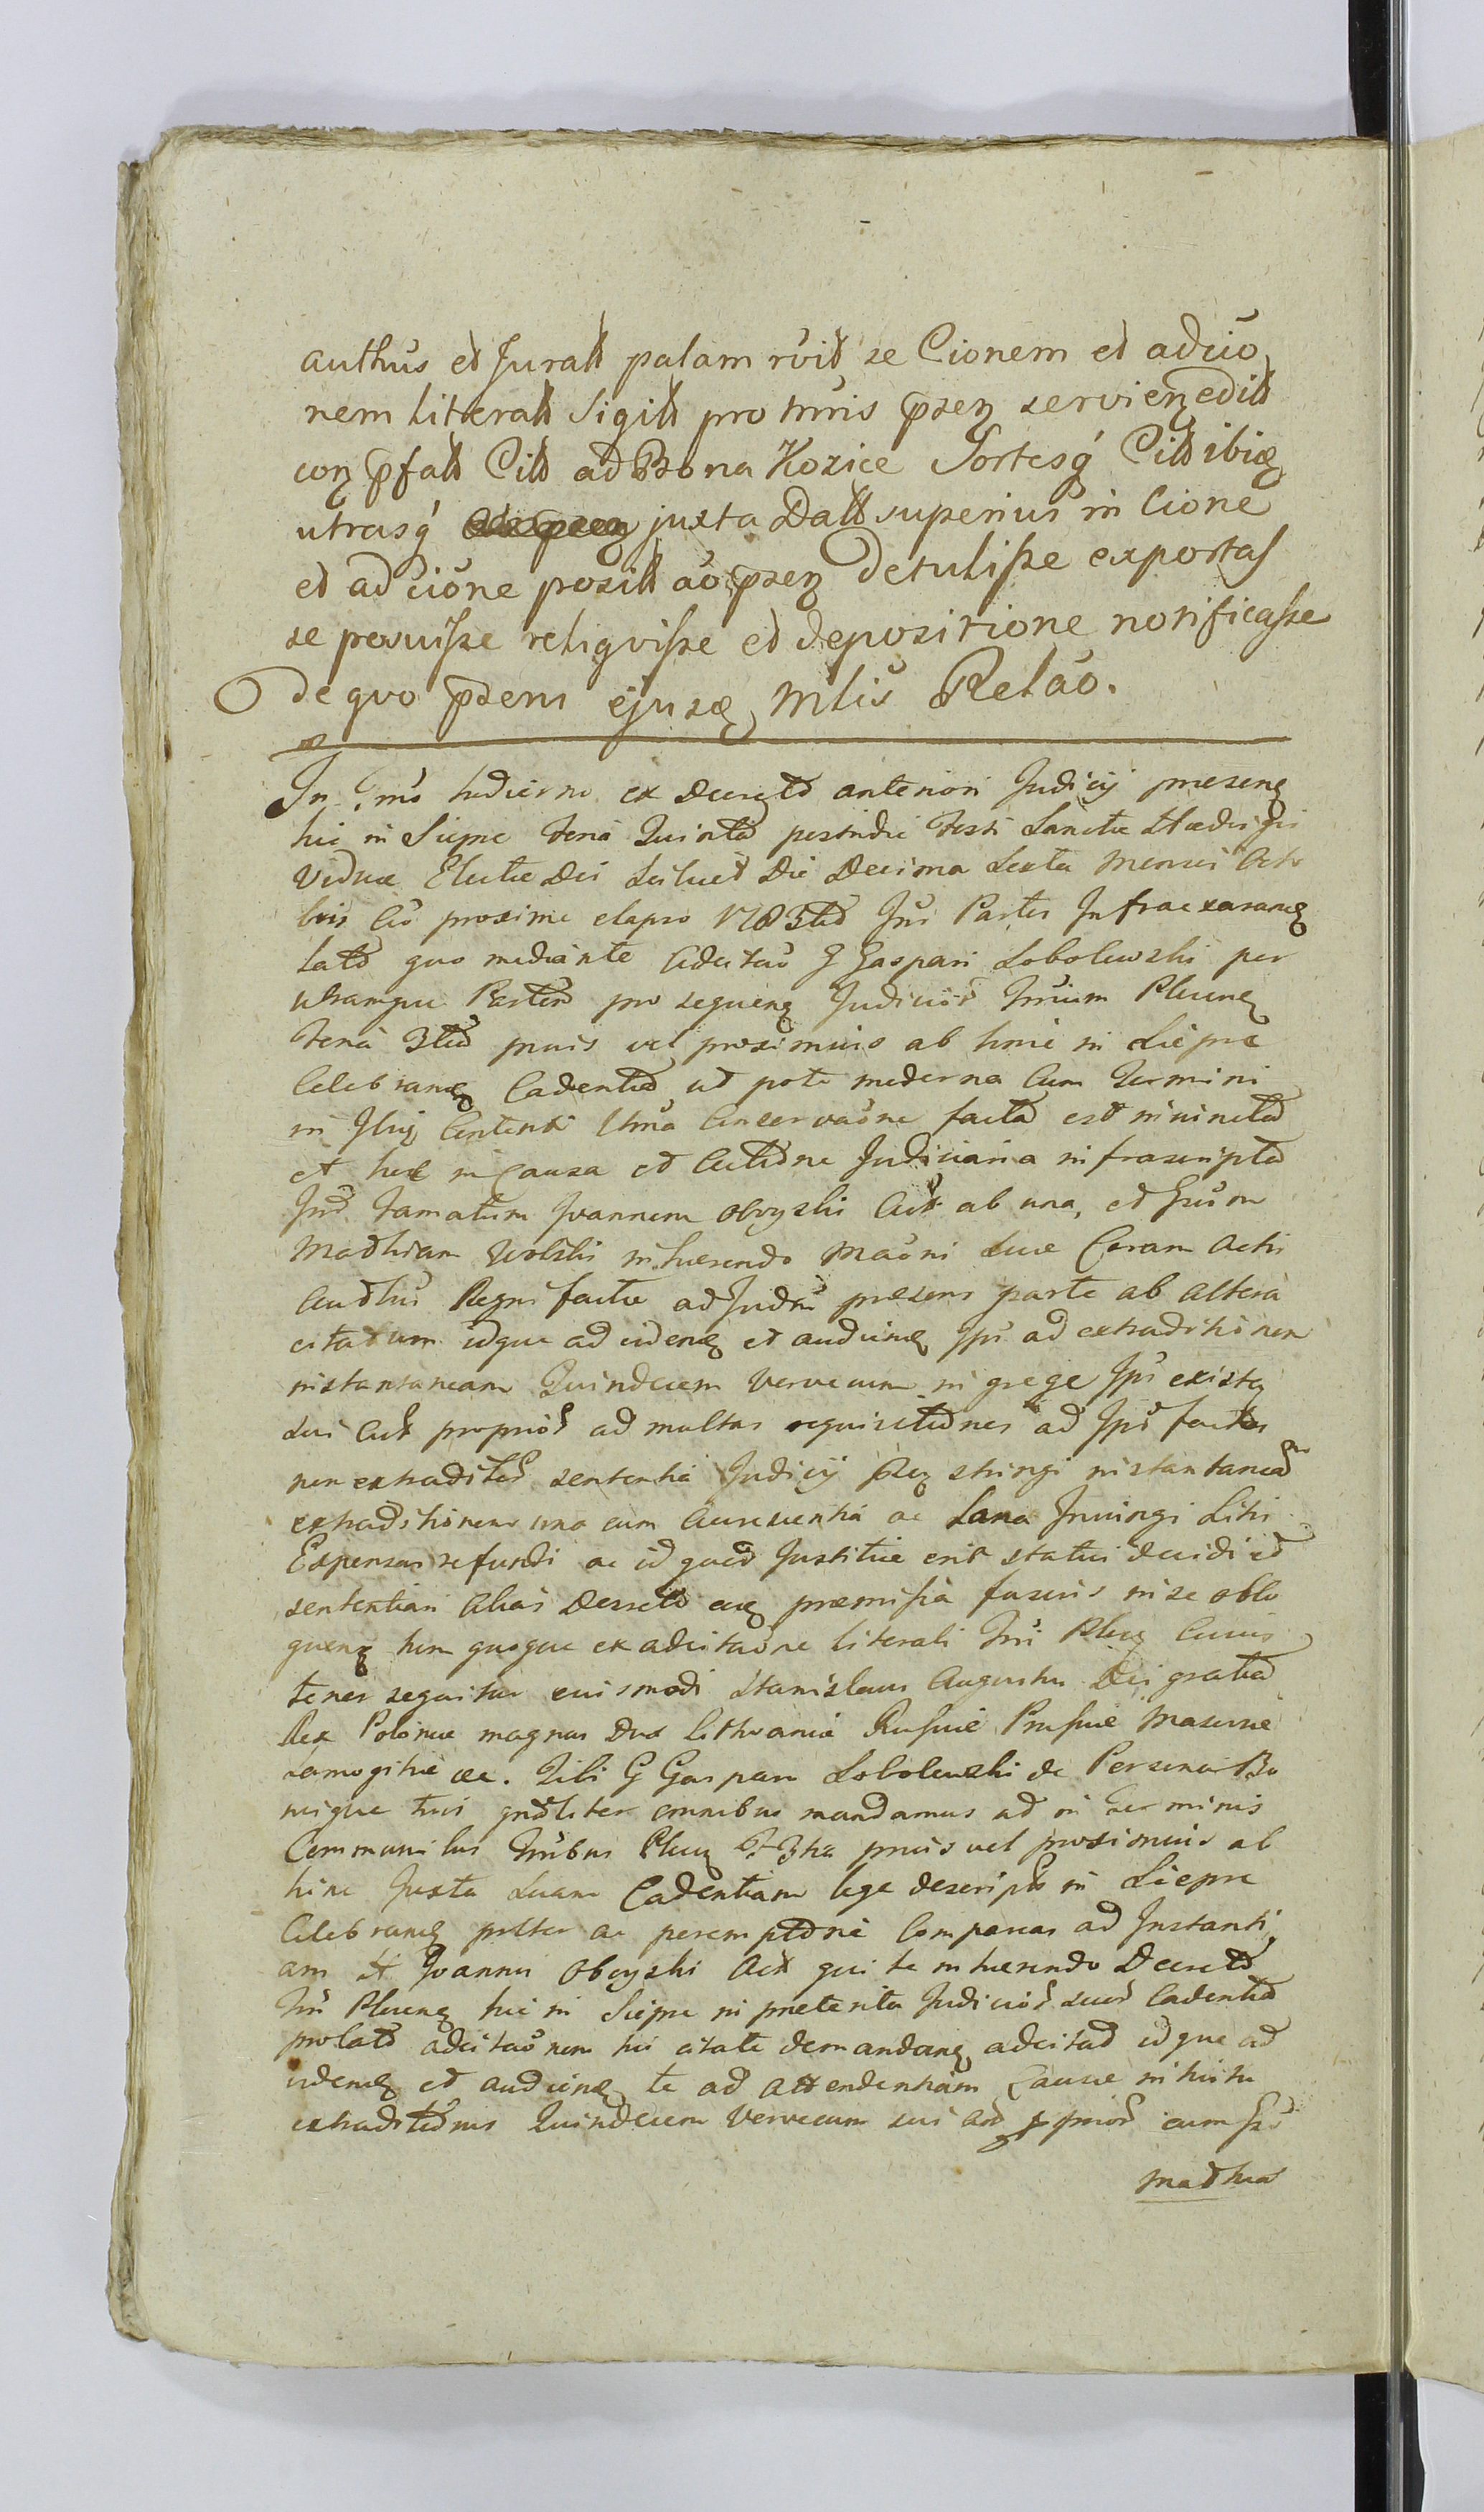 authus et Juratt palam rvit se Cionem et adcio
nem litteratt Sigill pro tmis psen servien edill
con pfatt Citt ad Bona Kozice Sortesq Citt ibid
utrasq juxta Datt superius in Cione
et adcione positt ao psen detulisse exportas
se posuisse reliqvisse et depositione notificasse
de qvo psens ejusd Mtlis Relao.
In Tmo hodierno ex Decreto anteriori Judicij praesen
hic in Siepre feria Quinta postridie Festi Sanctae Haedvigis
Viduae Electae Dei Scilicet Die Decima Sexta Mensis Octo
bris Ao proxime elapso 1783tio Inr Partes Infraexaran
lato quo mediante Adcitao G Gaspari Sobolewski per
utramque Partem pro sequen Judicior Trium Plocen
feria 3tia prius vel proximius ab hinc in Siepre
Celebran Cadentia ut pote moderna Cum Termini
in Illius Contenti Conservaone facta est
et haec in Causa et Actione Judiciaria infrascripta
Inr Famatum Joannem Obryski Act ab una, et Grsum
Mathiam Wolski inhaerendo Maoni suae Coram Actis
Authis Regni factae ad Judm praesens parte ab altera
citatum idque ad viden et audien Ipi ad extraditionem
instantaneam Quindecem Vervecum in grege Ipi existen
sui Act proprior ad multas requisitiones ad Ipo factas
non extraditor sententia Judicij psen stringi instantanea
extraditionem una cum Accrescentia ac Lana Iniungi Litis
Expensas refundi ac id quod Justitiae erit statui decidi et
sententiari Alias Decreto eoq praemissa fusius in se oblo
quen hin quoque ex adcitaone literali Tri Plocen Cuius
tenor sequitur eiusmodi Stanislaus Augustus Dei gratia
Rex Poloniae magnus Dux Lithvaniae Russiae Prussiae Masoviae
Samogitiae ae. Tibi G Gaspari Sobolewski de Persona Bo
nisque tuis gnaliter omnibus mandamus ut in Terminis
Communibus Tribus Plocen F 3tia prius vel proximius ab
hinc Juxta suam Cadentiam lege descripta in Siepre
Celebran pstter ac peremptorie Compareas ad Instanti
am Ft Joannis Obryski Act qui te inhaerendo Decreto
Tri Plocen hic in Siepre in praeterita Judicior suor Cadentia
prolato adcitaonem tui citate demandan adcitat idque ad
viden et audien te ad attendentiam Causae intuitu
extraditionis Quindecem Vervecum sui Act pprior cum Gso
Mathia